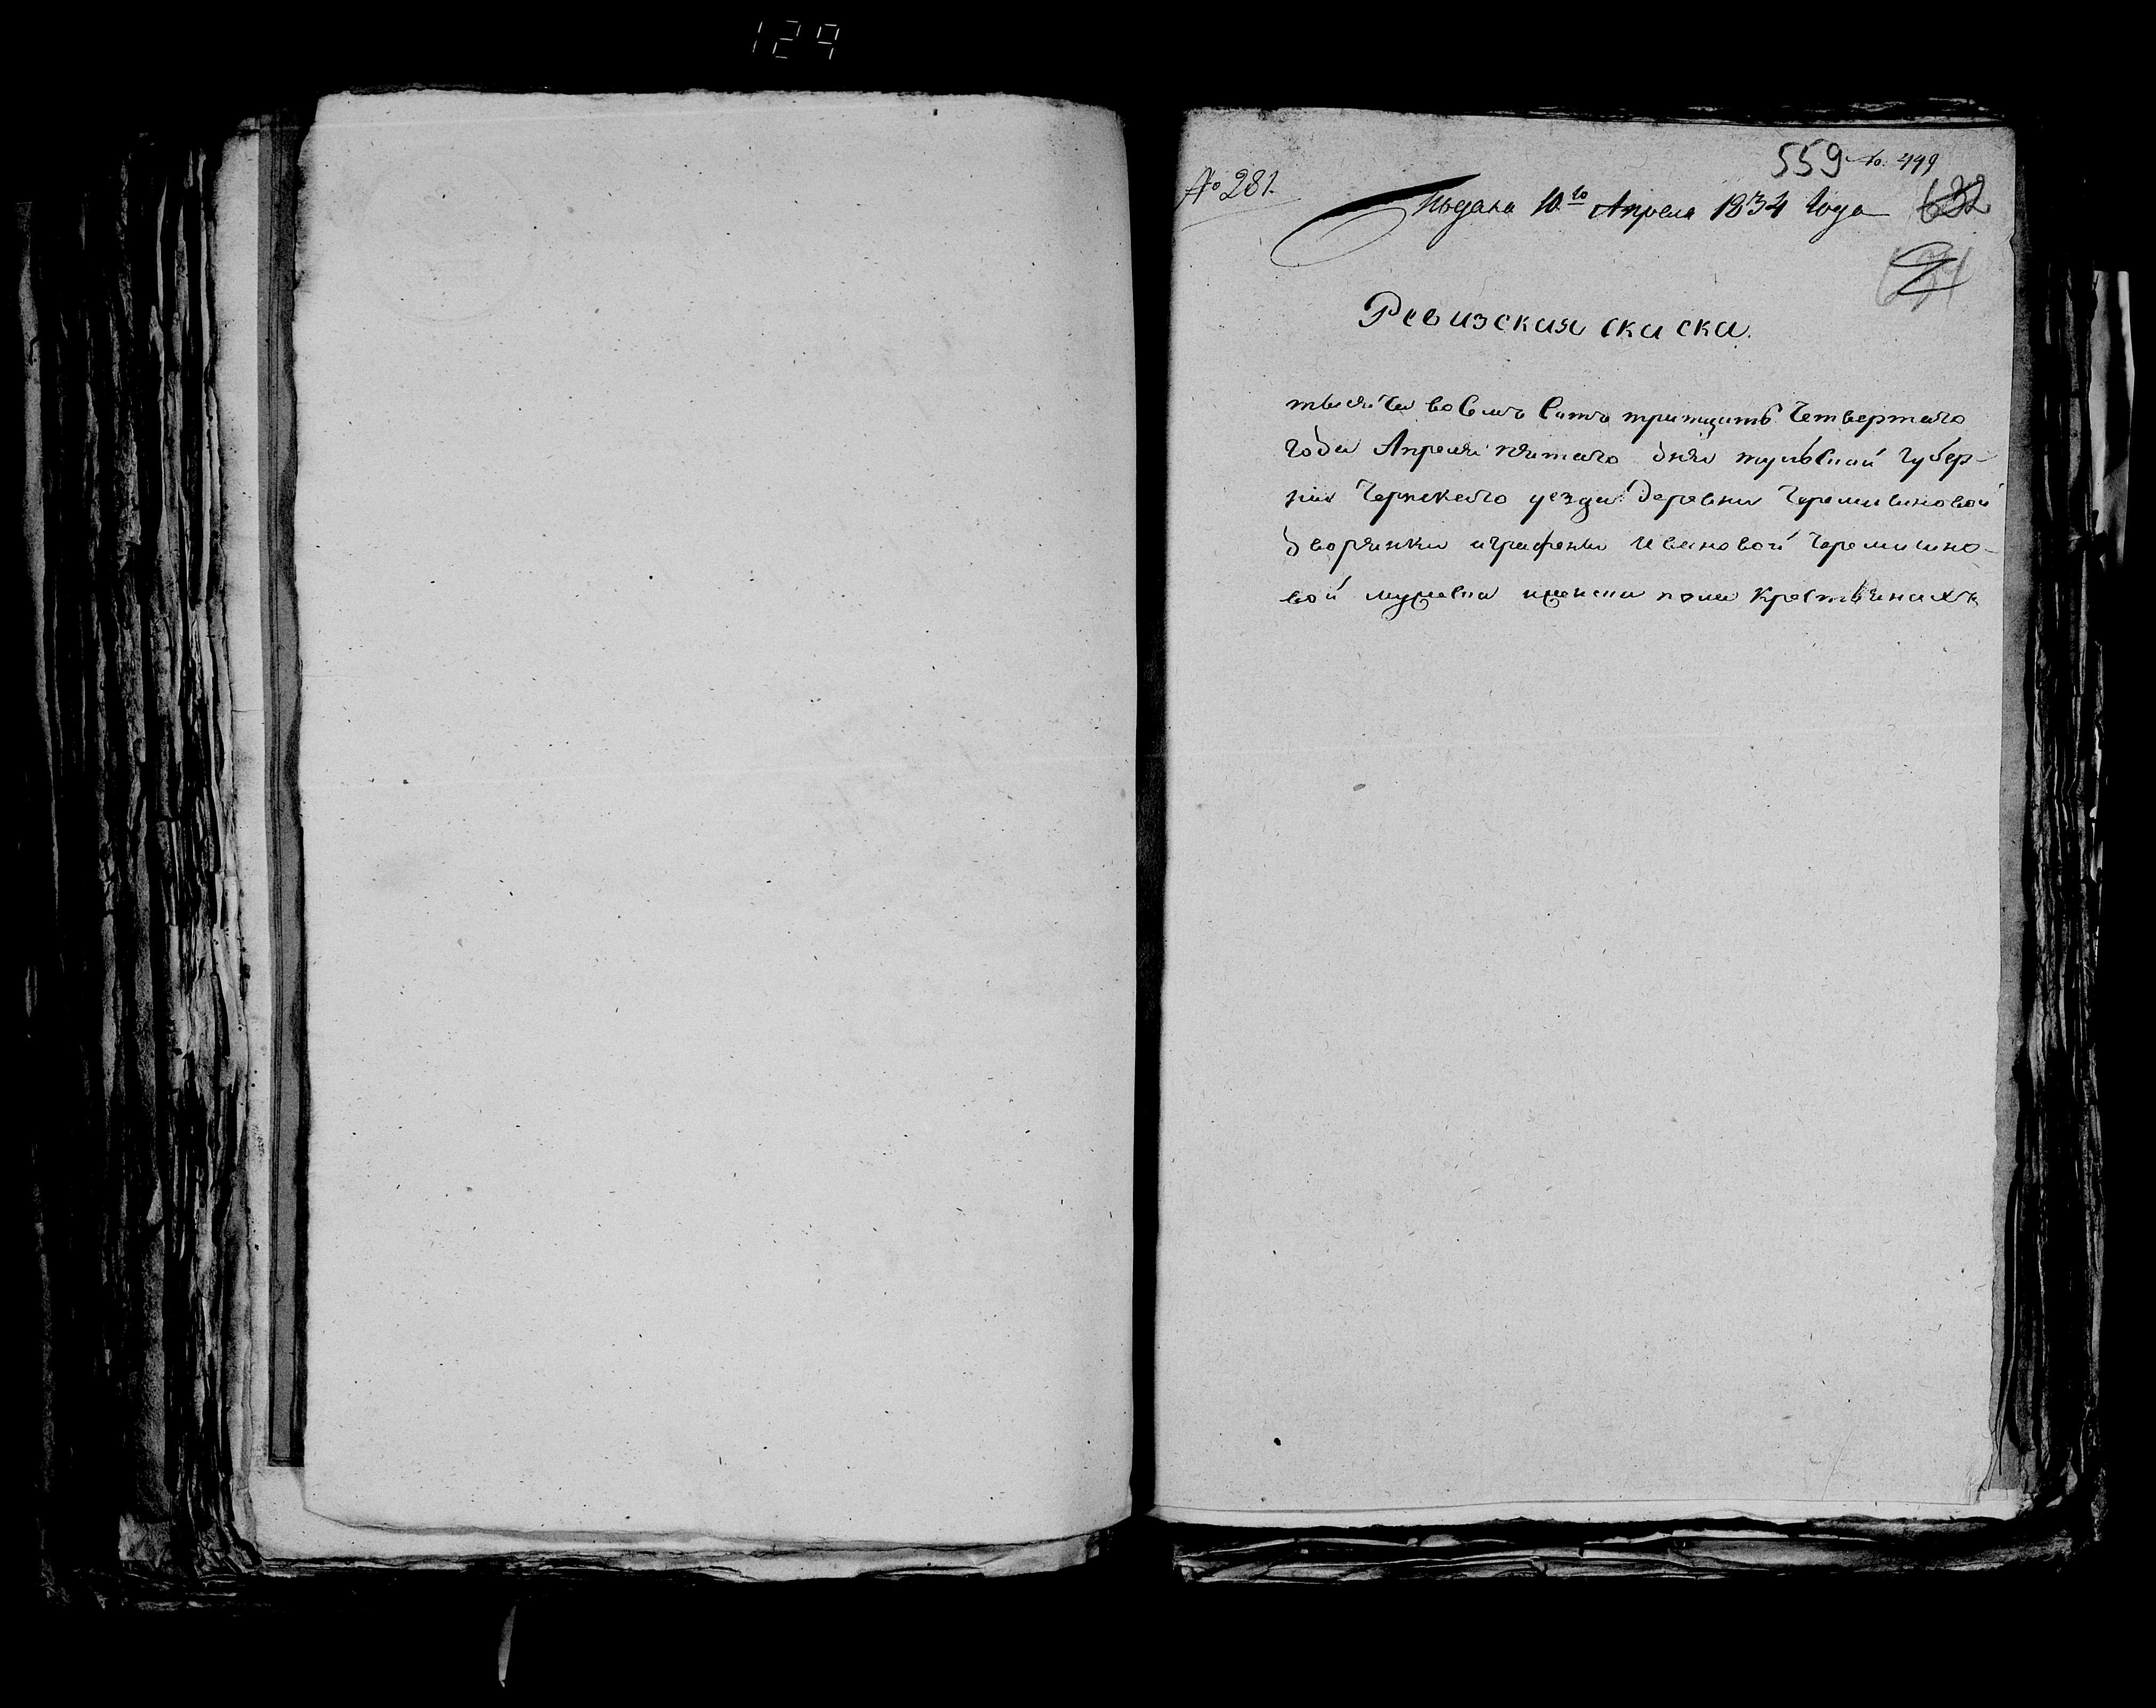 129
559 No. 449
№ 281.
Подана 10го Апреля 1834 Года 632
Ревизская скаска.
тысяча восемъ сотъ тритцать четвертаго
года Апреля пятаго дня тульской губер-
нии Чернскаго уезда деревни Черемисиновой
дворянки аграфены Ивановой Черемисино-
вой мужеска женска пола крестьянахъ